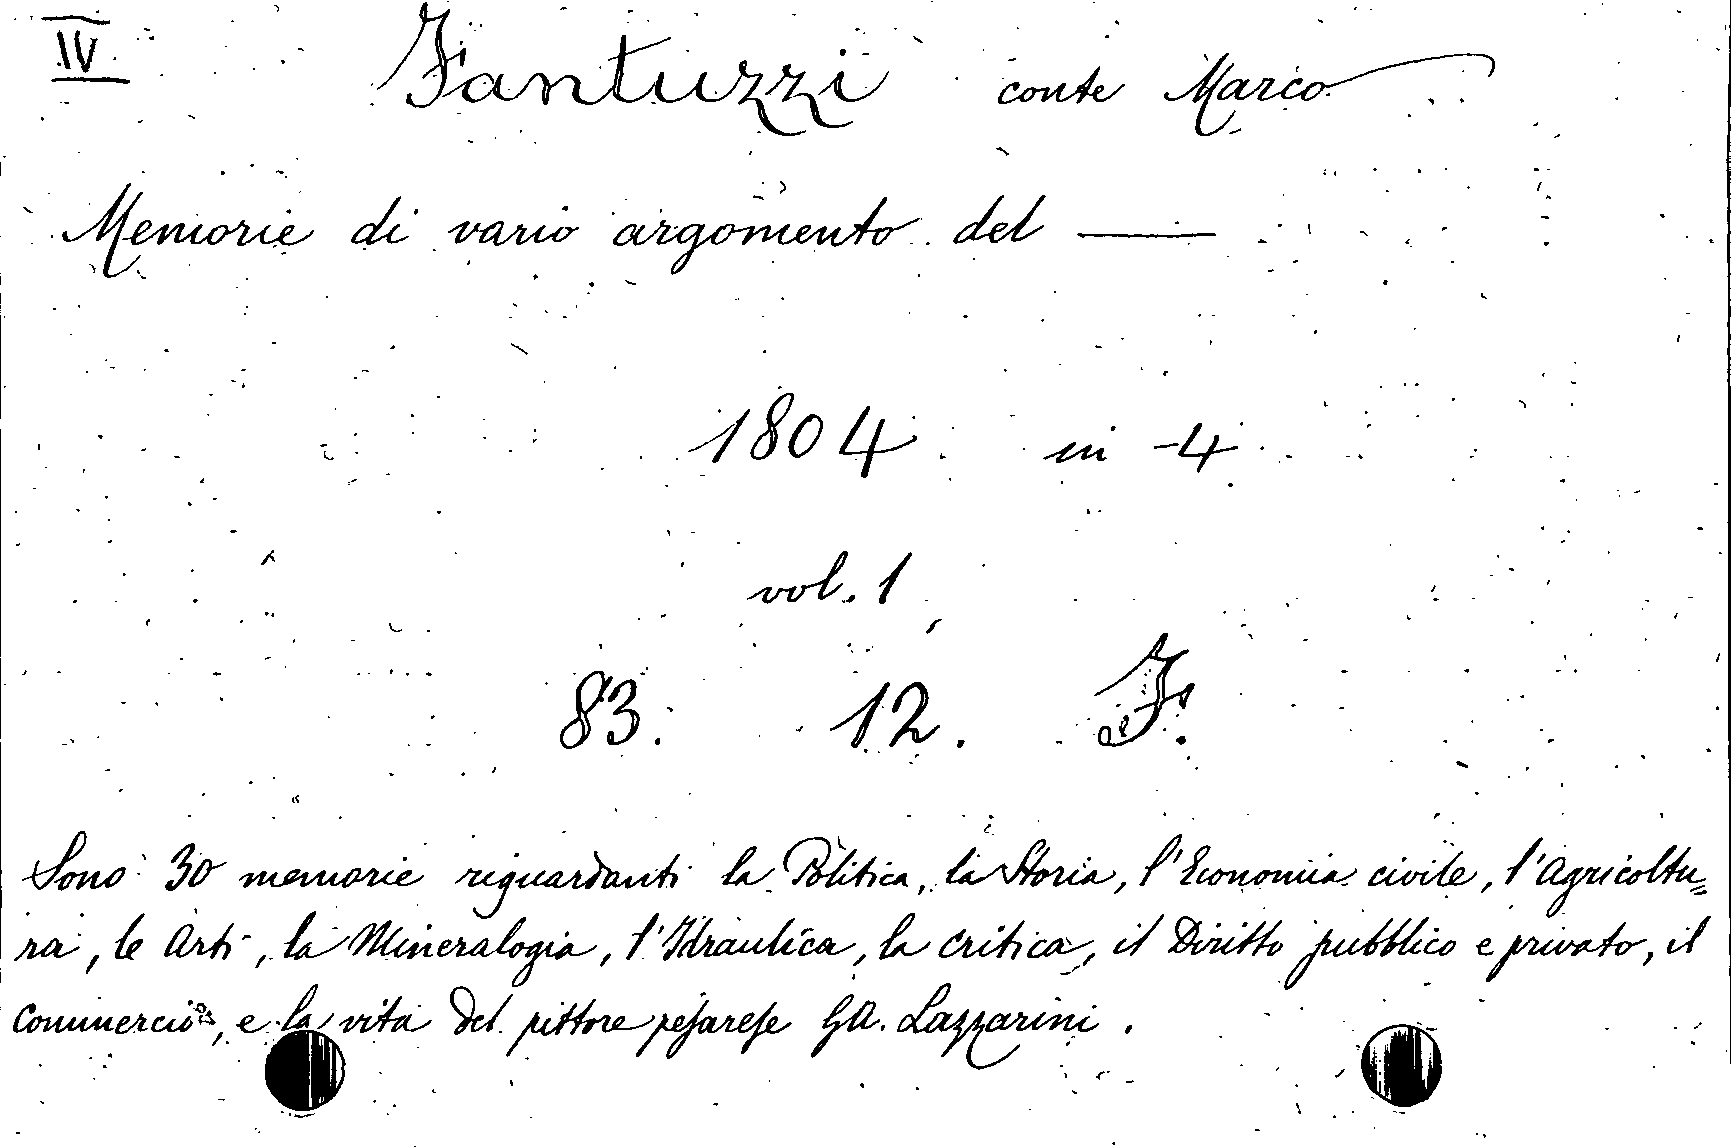 IV
Fantuzzi conte Marco
Memorie di vario argomento del ——
1804 in -4
vol. 1
83. 12. F.
Sono 30 memorie riguardanti la Politica, la Storia, l'Economia civile, l'Agricoltu=
ra, le Arti, la Mineralogia, l'Idraulica, la critica, il Diritto pubblico e privato, il
Commercio, e la vita del pittore pesarese GA. Lazzarini.